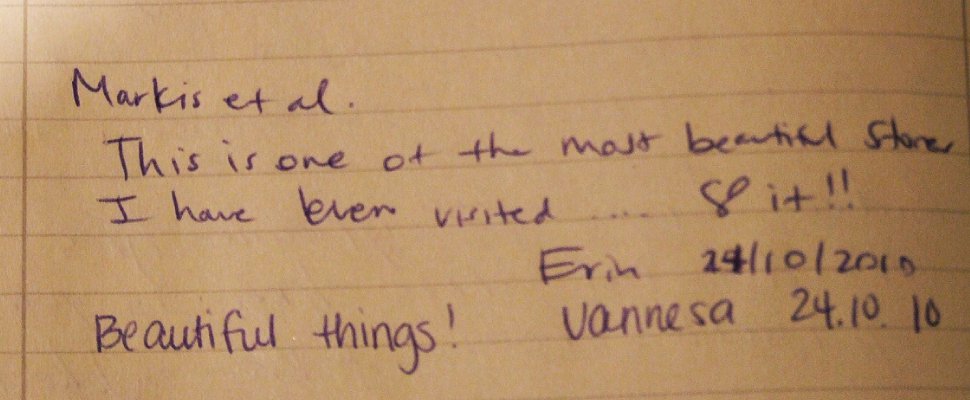 Markis et al.
This is one of the most beautiful stores
I have ever visited .... it!!
Erin 24/10/2010
Beautiful things! Vannesa 24.10.10